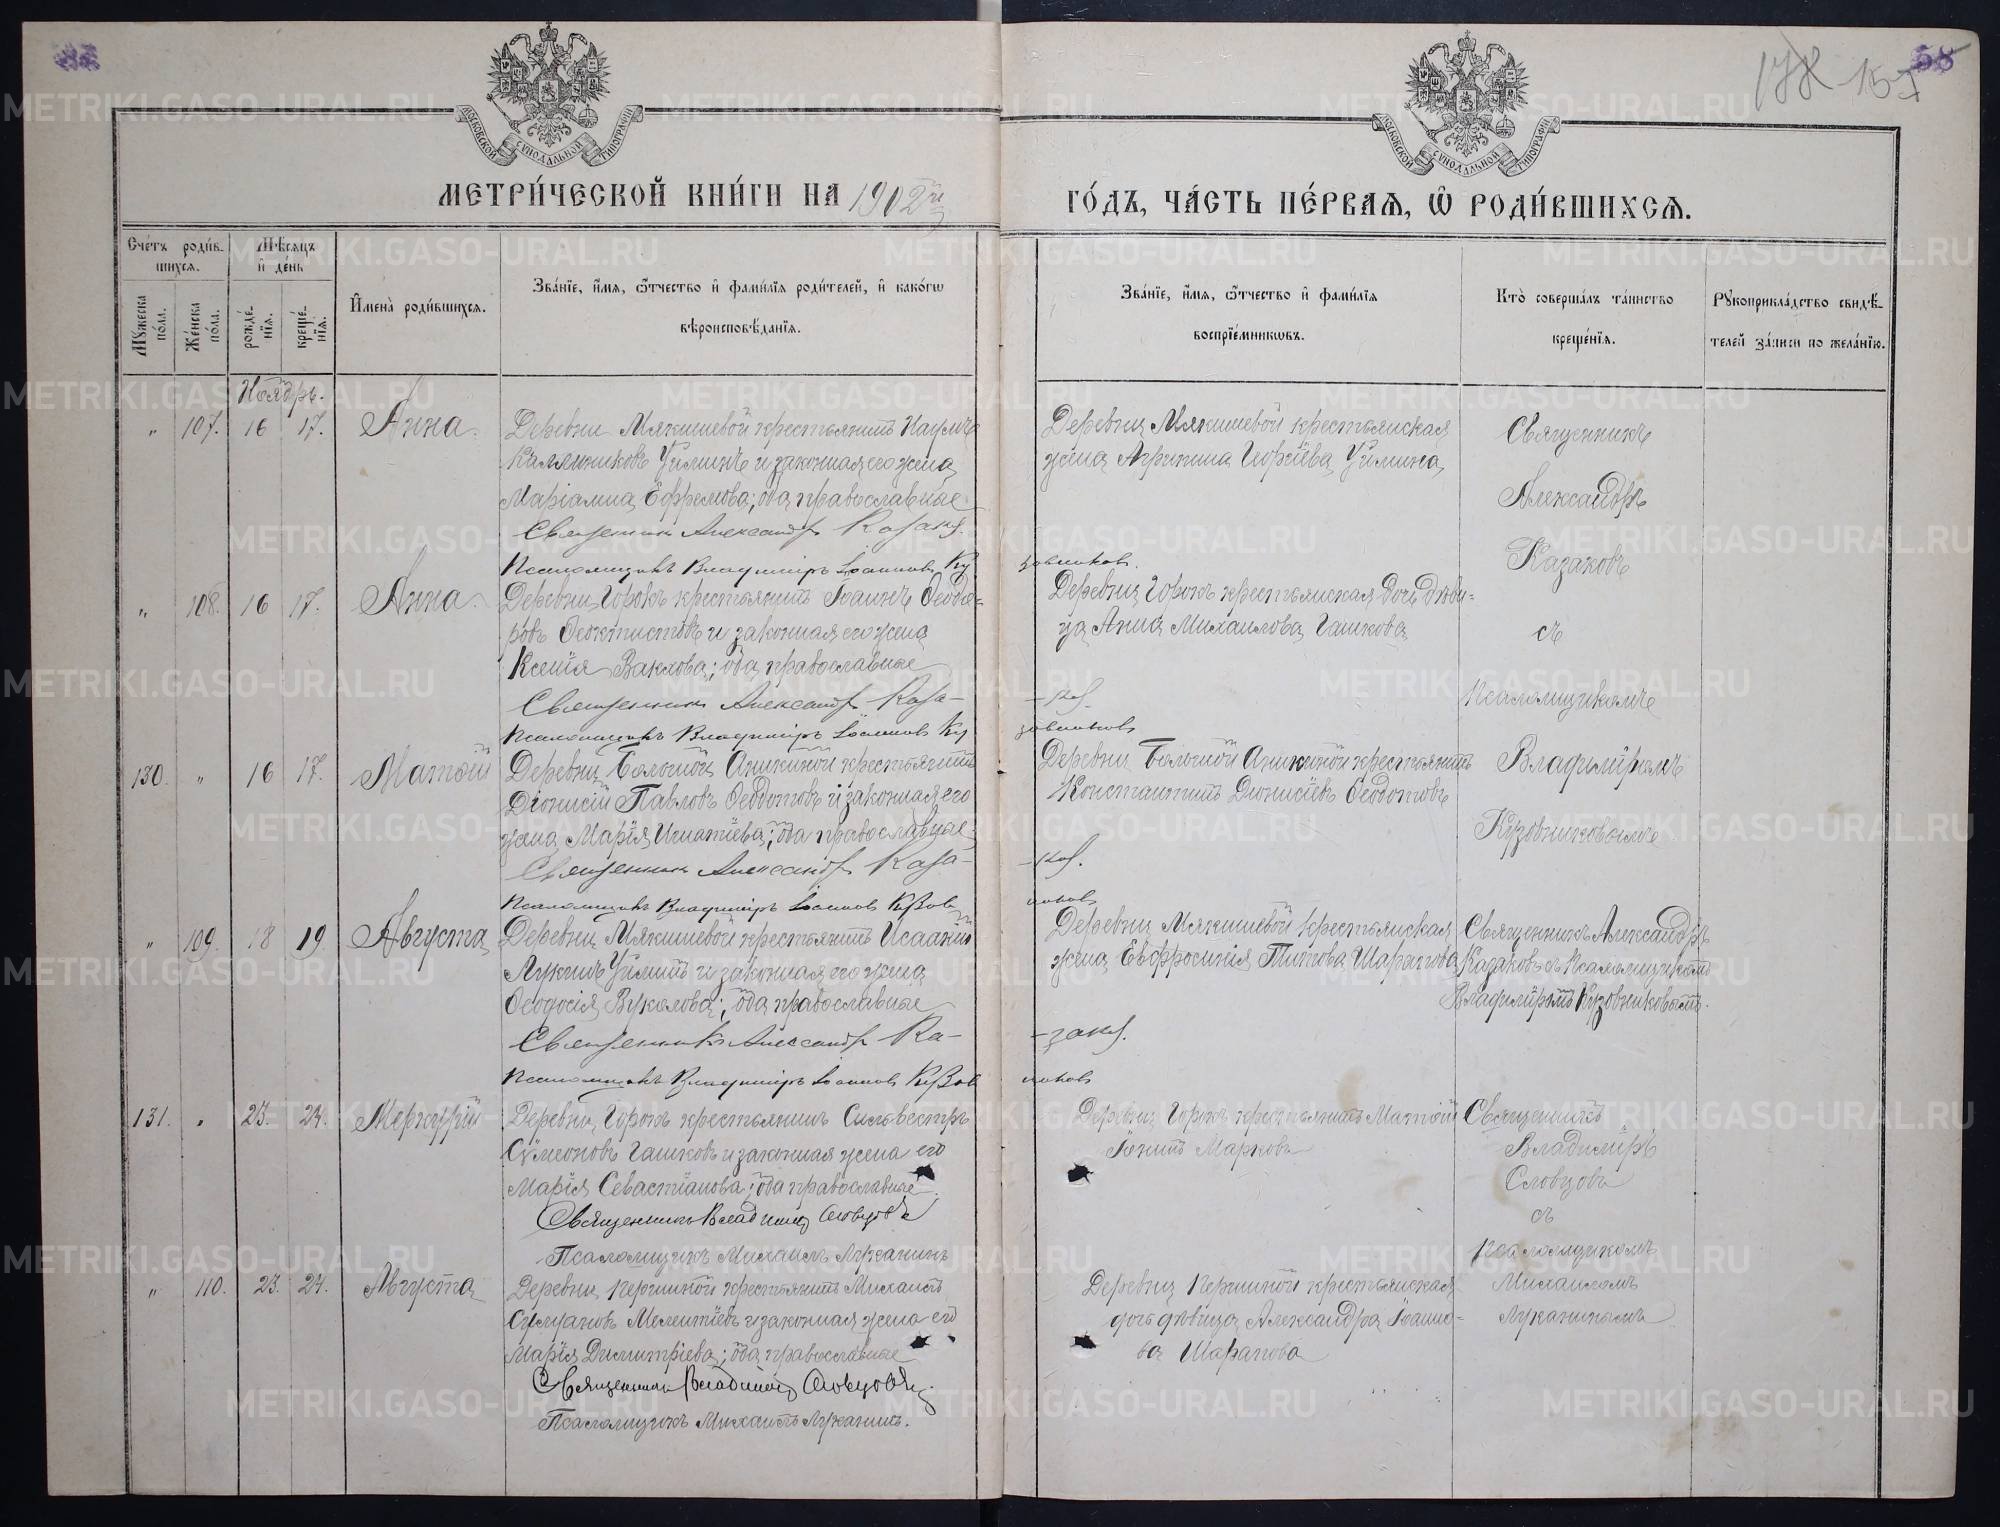 58
155
МОСКОВСКОЙ СѴНОДАЛЬНОЙ ТИПОГРАФІИ
МОСКОВСКОЙ СѴНОДАЛЬНОЙ ТИПОГРАФІИ
МЕТРИ́ЧЕСКОЙ КНИ́ГИ НА 1902й
ГО́ДЪ, ЧА́СТЬ ПЕ́РВАѦ, Ѡ РОДИ́ВШИХСѦ.
Сче́тъ роди́в-
шихсѧ.
Мѣ́сѧцъ
и҆ де́нь
Мꙋжеска
по́ла.
Же́нска
по́ла.
рожде́-
нїѧ.
креще́-
нїѧ.
И҆мена̀ роди́вшихсѧ.
Зва́нїе, и҆́мѧ, ѻ҆́тчество и҆ фами́лїѧ роди́телей, и҆ како́гѡ
вѣроисповѣ́данїѧ.
Зва́нїе, и҆́мѧ, ѻ҆́тчество и҆ фами́лїѧ
воспрїе́мникѡвъ.
Кто̀ соверша́лъ та́инство
креще́нїѧ.
Рꙋкоприкла́дство свидѣ́-
телей за́писи по жела́нїю.
Ноябрь.
" 107. 16 17. Анна.
Деревни Мякишевой крестьянинъ Наумъ
Калинниковъ Уйминъ и законная его жена
Маріамна Ефремова; оба православные
Священникъ Александръ Казаков.
Псаломщикъ Владиміръ Іоанновъ Ку
зовников.
Деревни Мякишевой крестьянская
жена Агрипина Георгіева Уймина
Священникъ
Александръ
Казаковъ
съ
Псаломщикомъ
Владиміромъ
Кузовниковымъ
" 108. 16 17. Анна.
Деревни Горокъ крестьянинъ Іоаннъ Ѳеодо-
ровъ Ѳеоктистовъ и законная его жена
Ксенія Ваклова; оба православные
Священникъ Александръ Каза-
-ков.
Псаломщикъ Владиміръ Іоанновъ Ку
зовников
Деревни Горокъ крестьянская дочь дѣви-
ца Анна Михаилова Гашкова
130. " 16 17. Матѳій
Деревни Большой Аникиной крестьянинъ
Діонисій Павловъ Ѳеодотовъ и законная его
жена Марія Игнатіева; оба православные.
Священникъ Александръ Каза-
-ков.
Псаломщикъ Владиміръ Іоанновъ Кузов
ников
Деревни Большой Аникиной крестьянинъ
Константинъ Діонисіевъ Ѳеодотовъ
" 109. 18 19. Августа
Деревни Мякишевой крестьянинъ Исаакій
Лукинъ Уйминъ и законная его жена
Ѳеодосія Вуколова; оба православные
Священникъ Александръ Ка-
-заков.
Псаломщикъ Владиміръ Іоанновъ Кузов
ников
Деревни Мякишевой крестьянская
жена Евфросинія Титова Шарапова
Священникъ Александръ
Казаковъ съ Псаломщикомъ
Владиміромъ Кузовниковымъ.
131. " 23. 24. Меркурій
Деревни Горокъ крестьянинъ Сильвестръ
Сумеоновъ Гашковъ и законная жена его
Марія Севастіанова; оба православные.
Священникъ Владиміръ Словцовъ
Псаломщикъ Михаилъ Луканинъ
Деревни Горокъ крестьянинъ Матѳій
Іонинъ Марковъ
Священникъ
Владиміръ
Словцовъ
съ
псаломщикомъ
Михаиломъ
Луканинымъ
" 110. 23. 24. Августа
Деревни Першиной крестьянинъ Михаилъ
Мелентіевъ и законная жена его
Марія Димитріева; оба православные
Священникъ Владиміръ Словцовъ.
Псаломщикъ Михаилъ Луканинъ.
Деревни Першиной крестьянская
дочь дѣвица Александра Іоанно-
ва Шарапова